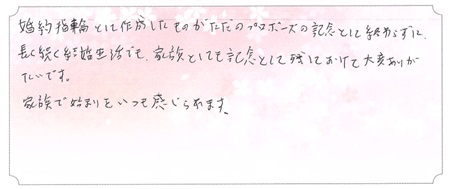 婚約指輪として作成したものがただのプロポーズの記念として終わらずに、
長く続く結婚生活でも、家族としても記念として残しておけて大変ありが
たいです。
家族で始まりをいつも感じられます。